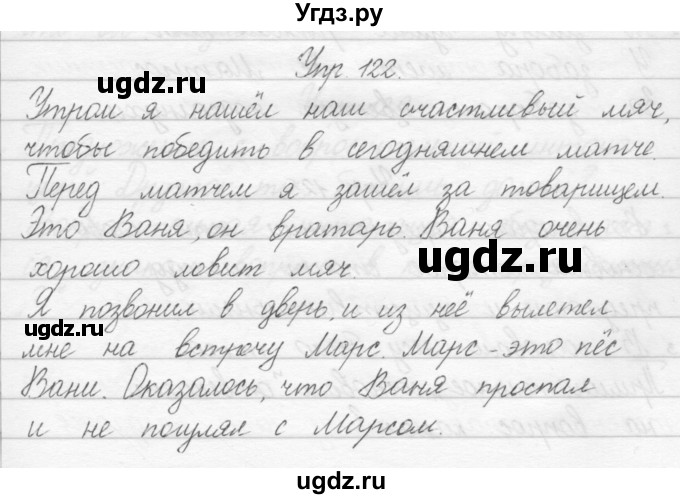 Угдз.ру
Упр 122.
ugdz.ru
Утром я нашёл наш счастливый мяч,
чтобы победить в сегодняшнем матче.
Перед матчем я зашёл за товарищем.
Это Ваня, он вратарь. Ваня очень
ugdz.ru
хорошо ловит мяч.
Я позвонил в дверь, и из неё вылетел
ugdz.ru
мне на встречу Марс. Марс - это пёс
Вани. Оказалось, что Ваня проспал
и не погулял с Марсом.
ugdz.ru